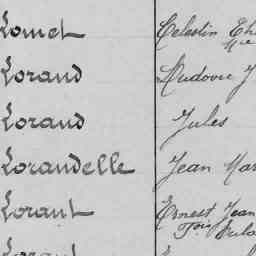 Lomet Celestin
Lorand Ludovic J
Lorand Jules
Lorandelle Jean Mar
Lorant Ernest Jean